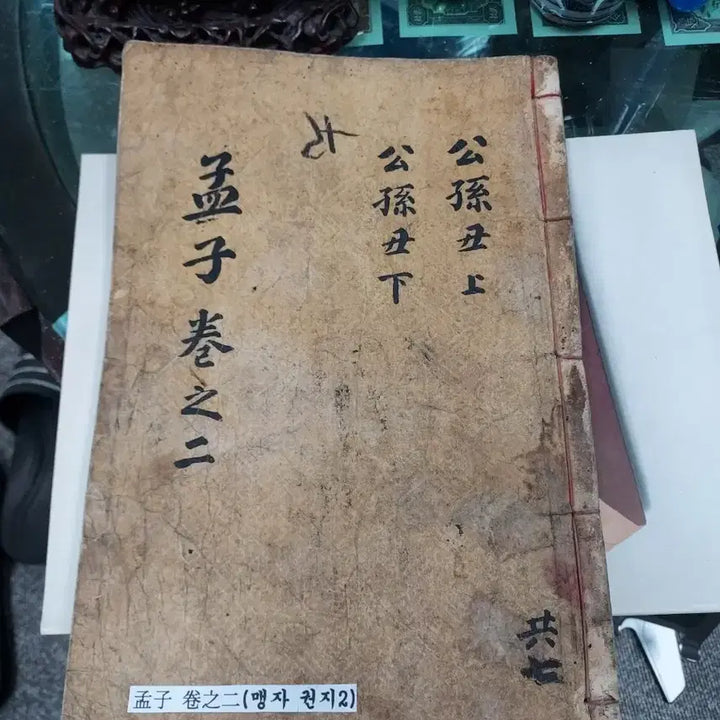 公孫丑上
公孫丑下
孟子卷之二
共七
孟子 卷之二(맹자 권지2)